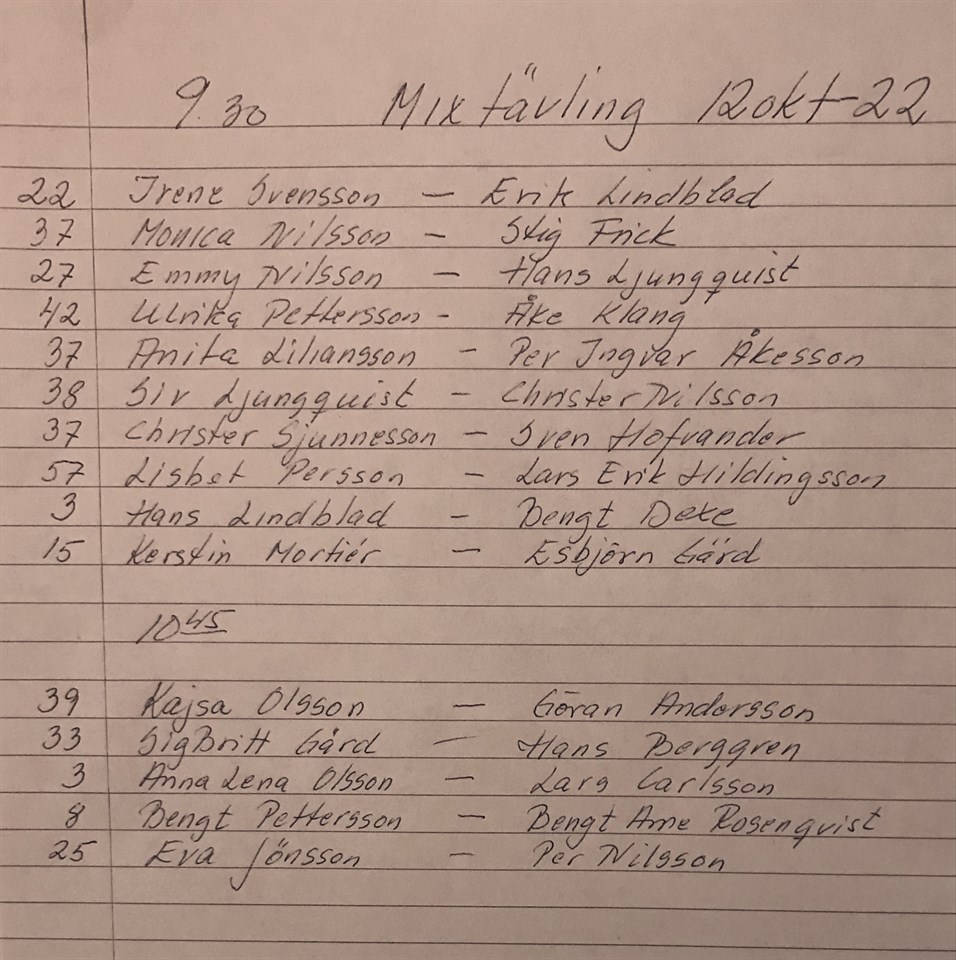 9.30 Mixtävling 12 okt-22
22 Irene Svensson — Erik Lindblad
37 Monica Nilsson — Stig Frick
27 Emmy Nilsson — Hans Ljungquist
42 Ulrika Pettersson - Åke Klang
37 Anita Liliansson — Per Ingvar Åkesson
38 Siv Ljungquist — Christer Nilsson
37 Christer Sjunnesson — Sven Hofvander
57 Lisbet Persson — Lars Erik Hildingsson
3 Hans Lindblad — Bengt Deke
15 Kerstin Mortiér — Esbjörn Gärd
10 45
39 Kajsa Olsson — Göran Andersson
33 SigBritt Gärd — Hans Berggren
3 Anna Lena Olsson — Lars Carlsson
8 Bengt Pettersson — Bengt Arne Rosenqvist
25 Eva Jönsson — Per Nilsson